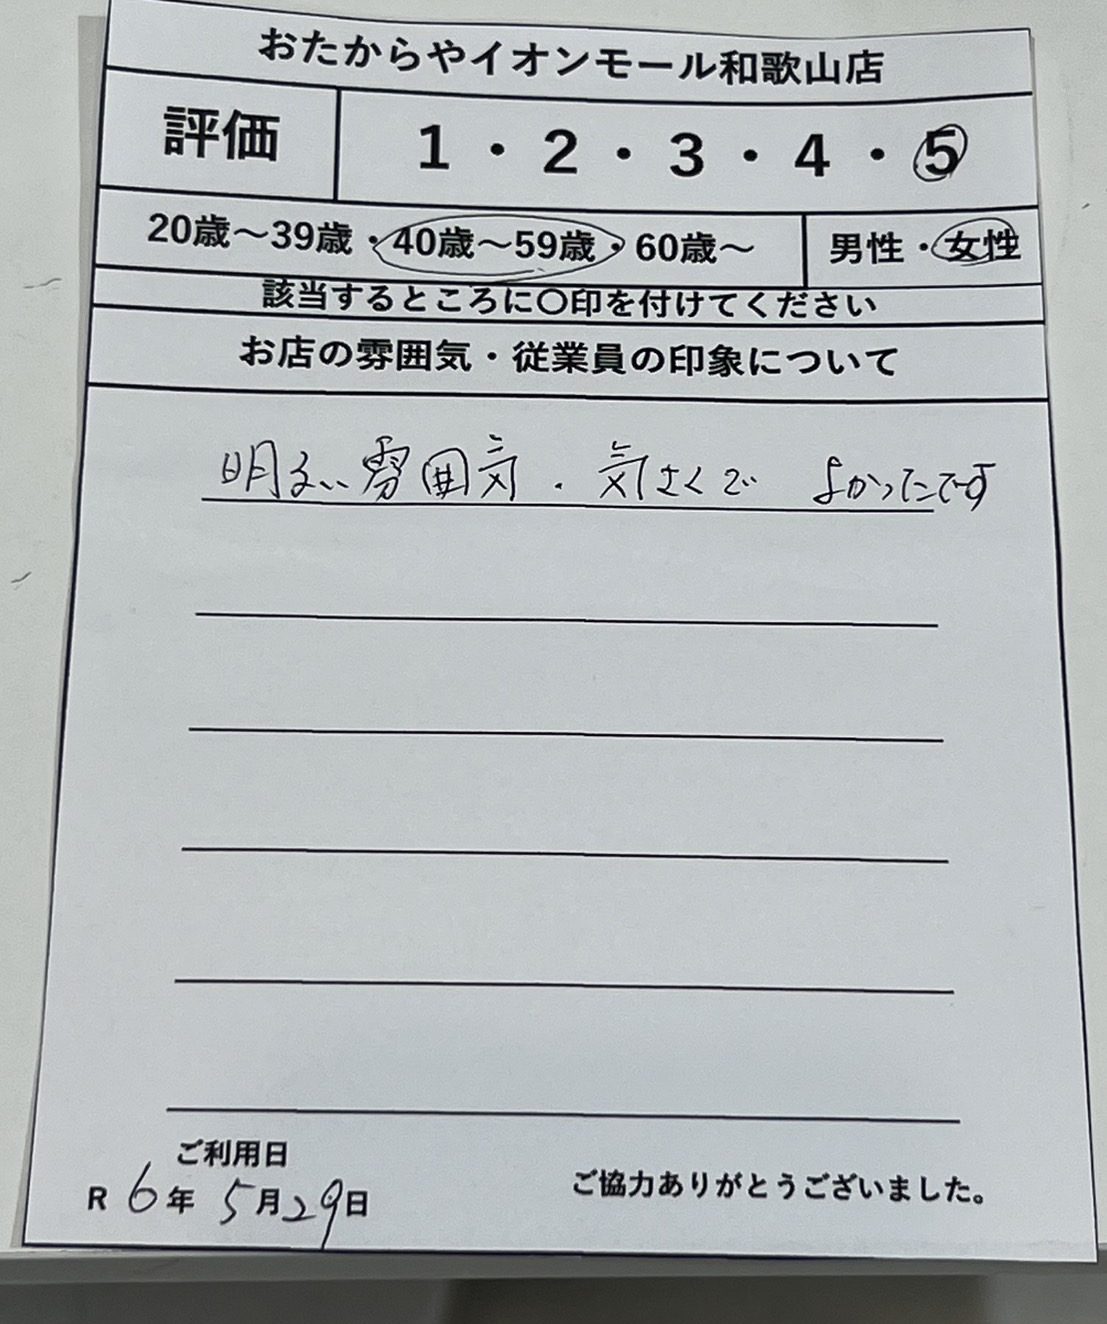 おたからやイオンモール和歌山店
評価 1・2・3・4・5
20歳～39歳・40歳～59歳・60歳～ 男性・女性
該当するところに〇印を付けてください
お店の雰囲気・従業員の印象について
明るい雰囲気・気さくで よかったです
ご利用日
R 6年 5月29日 ご協力ありがとうございました。